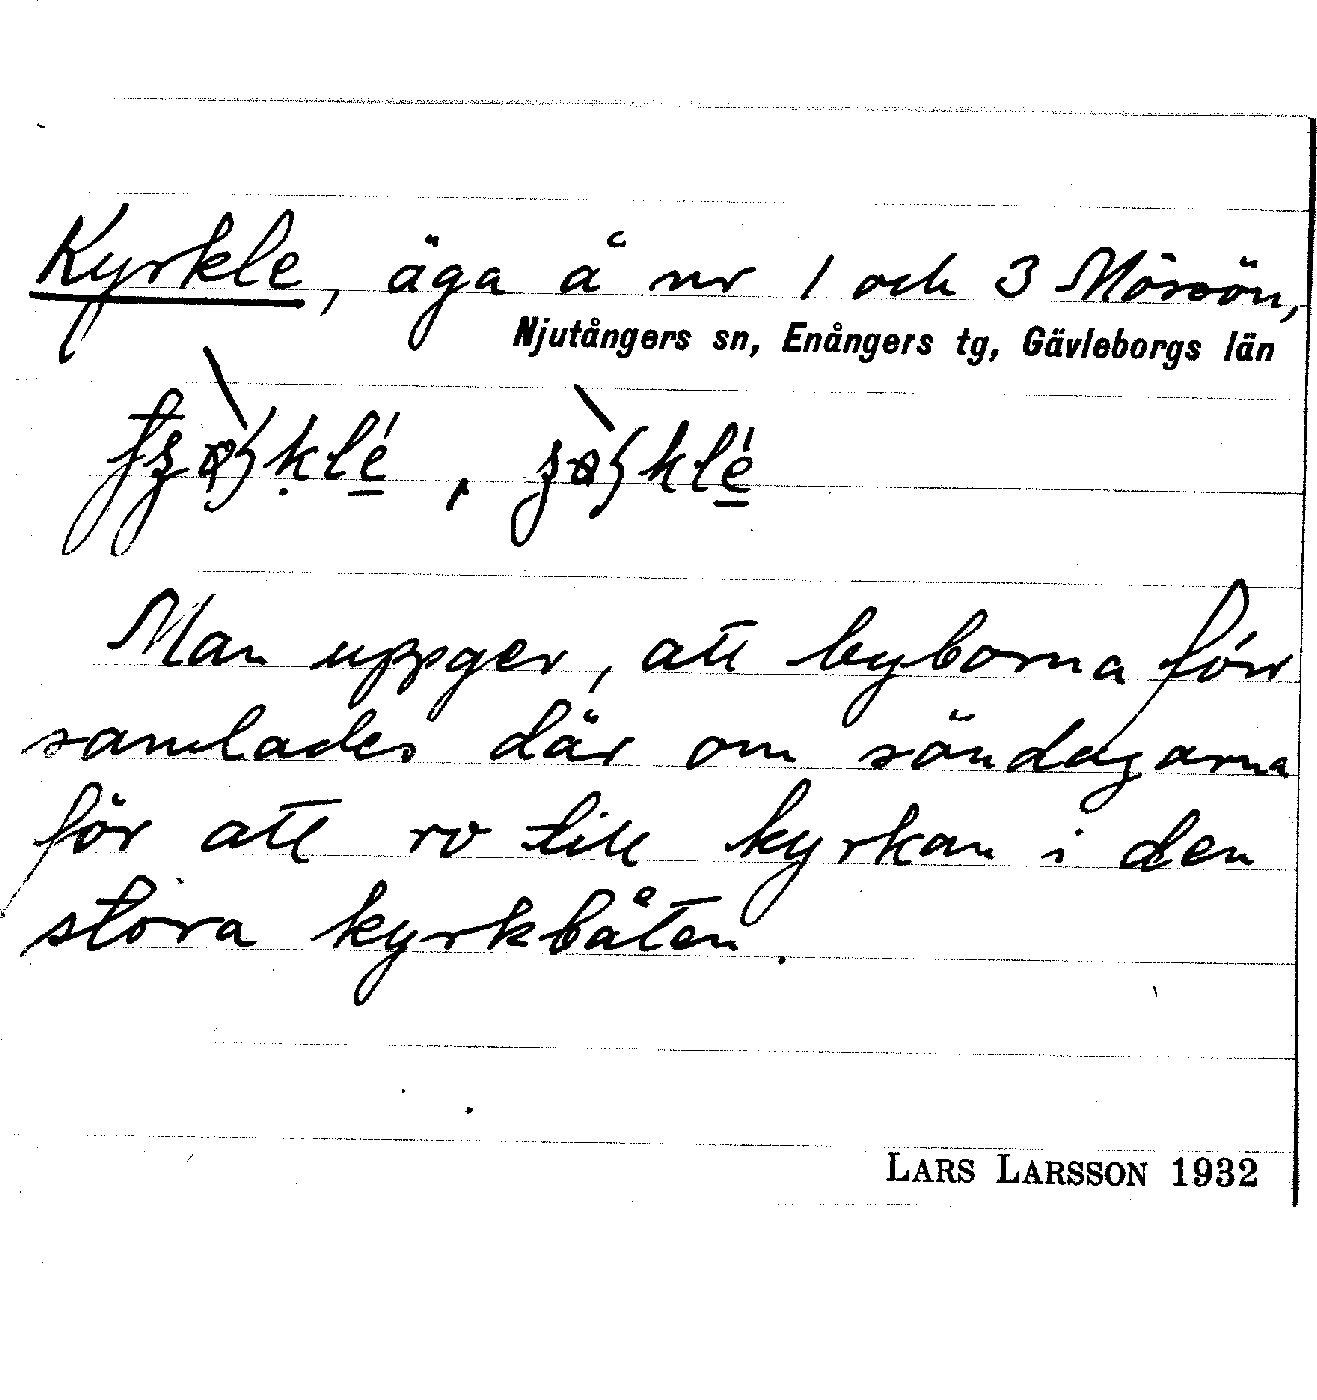 Kyrkle, äga å nr 1 och 3 Mössön,
Njutångers sn, Enångers tg, Gävleborgs län
Man uppger, att byborna förr
samlades där om söndagarna
för att ro till kyrkan i den
stora kyrkbåten.
LARS LARSSON 1932